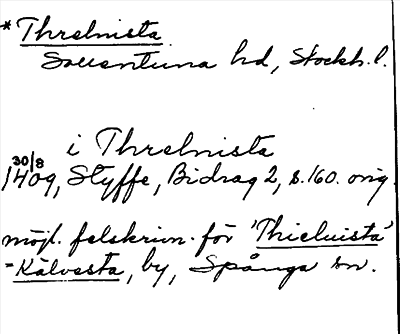 *Threlnista
Sollentuna hd, Stockh. l.
i Threlnista
30/8
1409, Styffe, Bidrag 2, s. 160. orig.
möjl. felskrivn. för 'Thieluista'
= Kälvesta, by, Spånga sn.